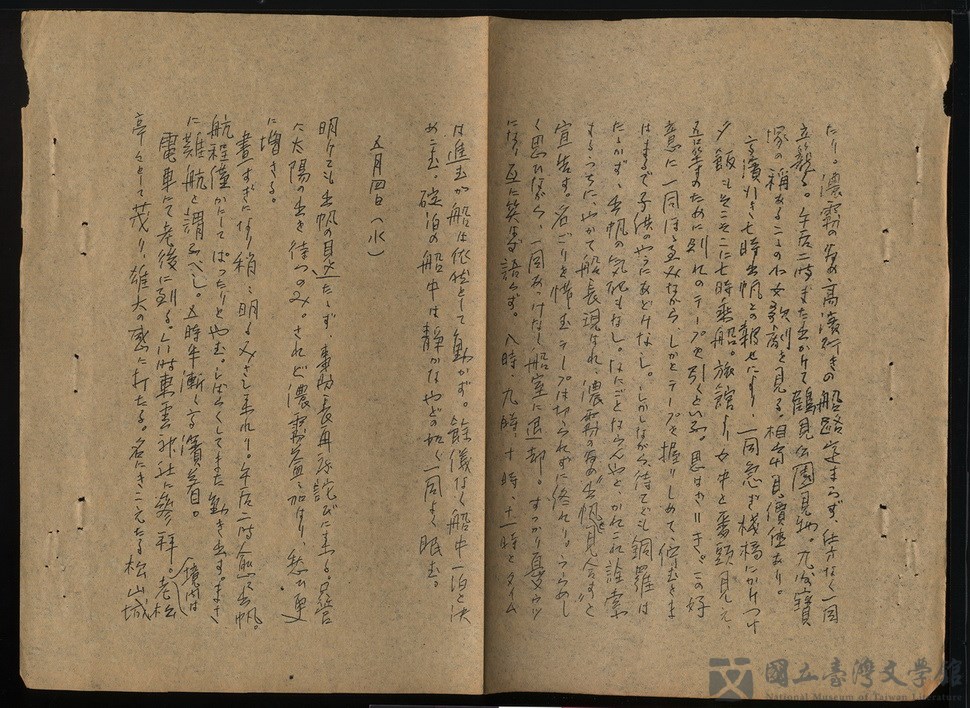 たり。濃霧の為め高濱行きの船路定まらず、仕方なく一同
立籠る。午后二時また出かけて鶴見公園見物。九州寶
塚の稱あるこの少女歌劇を見る。相當見價値あり。
高濱行き七時出帆との報せにより、一同急ぎ棧橋にかけつけ
夕飯もそこそこに七時乘船。旅館より女中と番頭見え、
五色のために別れのテープを引くといふ。思はざりき。この好
意に一同ほゝ笑みながら、しかとテープを握りしめて佇むさま
はまるで子供のやうにあどけなし。しかしながら待てども銅羅は
たゝかず、出帆の気配もなし。はたごとならんやと、かれこれ詮索
するうちに、やがて船長現はれ、濃霧の為め出帆見合すと
宣告す。名ごりを惜むテープは切られずに終れり。うらめし
く思ひながら、一同あつけなく船室に退却。すつかり憂ウツ
になり、互に笑はず語らず。八時、九時、十時、十一時とタイム
は進むが船は依然として動かず。餘儀なく船中一泊と決
め込む。碇泊の船中は静かなやどの如く一同よく眠む。
五月四日(水)
明けても出帆の見込たゝず 事務長再び詫びに来る。只管
に太陽の出を待つのみ。されど濃霧益々加はり、愁ひ更
に増さる。
晝すぎになり稍々明るみさし来れり。午后二時愈々出帆。
航程僅かにしてぱったりとやむ。しばらくしてまた動き出す。まさ
に難航と謂ふべし。五時半漸く高濱着。
電車にて道後に到る。六時東雲神社に參拜。境内は老松
亭々として茂り、雄大の感に打たる。名にきこえたる松山城
國立臺灣文學館
National Museum of Taiwan Literature